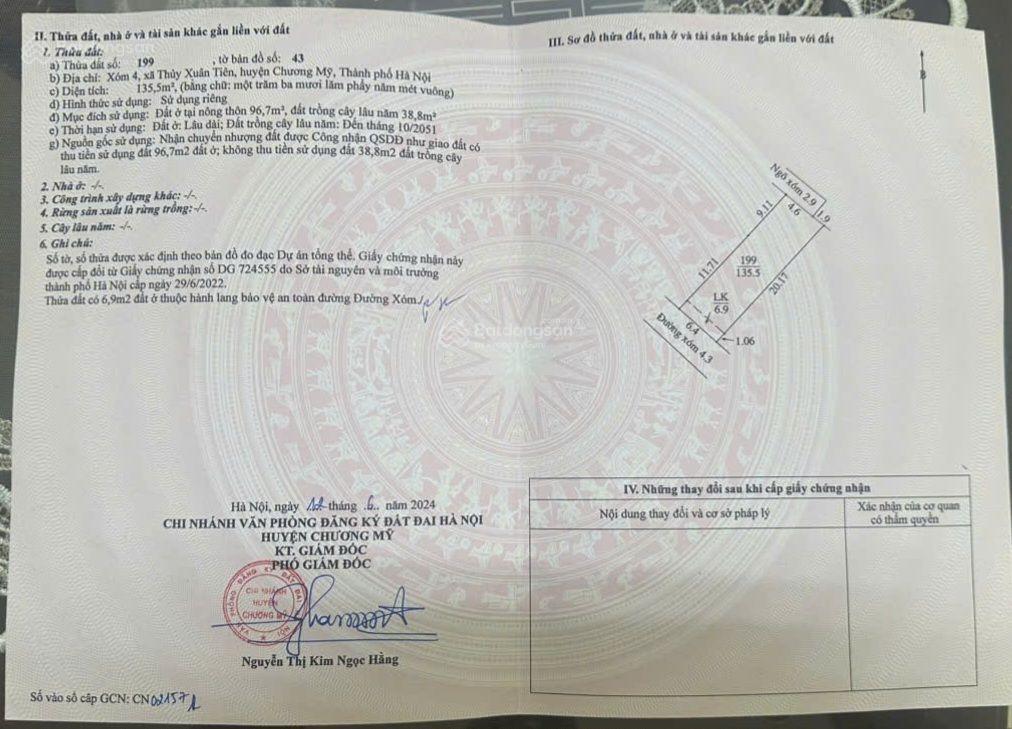 II. Thửa đất, nhà ở và tài sản khác gắn liền với đất
1. Thửa đất:
a) Thửa đất số: 199 , tờ bản đồ số: 43
b) Địa chỉ: Xóm 4, xã Thủy Xuân Tiên, huyện Chương Mỹ, Thành phố Hà Nội
c) Diện tích: 135,5m², (bằng chữ: một trăm ba mươi lăm phẩy năm mét vuông)
d) Hình thức sử dụng: Sử dụng riêng
đ) Mục đích sử dụng: Đất ở tại nông thôn 96,7m², đất trồng cây lâu năm 38,8m²
e) Thời hạn sử dụng: Đất ở: Lâu dài; Đất trồng cây lâu năm: Đến tháng 10/2051
g) Nguồn gốc sử dụng: Nhận chuyển nhượng đất được Công nhận QSDĐ như giao đất có
thu tiền sử dụng đất 96,7m2 đất ở; không thu tiền sử dụng đất 38,8m2 đất trồng cây
lâu năm.
2. Nhà ở: -/-.
3. Công trình xây dựng khác: -/-.
4. Rừng sản xuất là rừng trồng:-/-.
5. Cây lâu năm: -/-.
6. Ghi chú:
Số tờ, số thửa được xác định theo bản đồ đo đạc Dự án tổng thể. Giấy chứng nhận này
được cấp đổi từ Giấy chứng nhận số DG 724555 do Sở tài nguyên và môi trường
thành phố Hà Nội cấp ngày 29/6/2022.
Thửa đất có 6,9m2 đất ở thuộc hành lang bảo vệ an toàn đường Đường Xóm./.
Batdongsan
Hà Nội, ngày tháng .6.. năm 2024
CHI NHÁNH VĂN PHÒNG ĐĂNG KÝ ĐẤT ĐAI HÀ NỘI
HUYỆN CHƯƠNG MỸ
KT. GIÁM ĐỐC
PHÓ GIÁM ĐỐC
CHI NHÁNH
HUYỆN
CHƯƠNG MỸ
Nguyễn Thị Kim Ngọc Hằng
Số vào sổ cấp GCN: CN02157
III. Sơ đồ thửa đất, nhà ở và tài sản khác gắn liền với đất
B
Ngõ xóm 2.9
1.9
4.6
9.11
11.71
199
135.5
20.17
LK
6.9
6.4
1.06
Đường xóm 4.3
IV. Những thay đổi sau khi cấp giấy chứng nhận
Nội dung thay đổi và cơ sở pháp lý
Xác nhận của cơ quan
có thẩm quyền